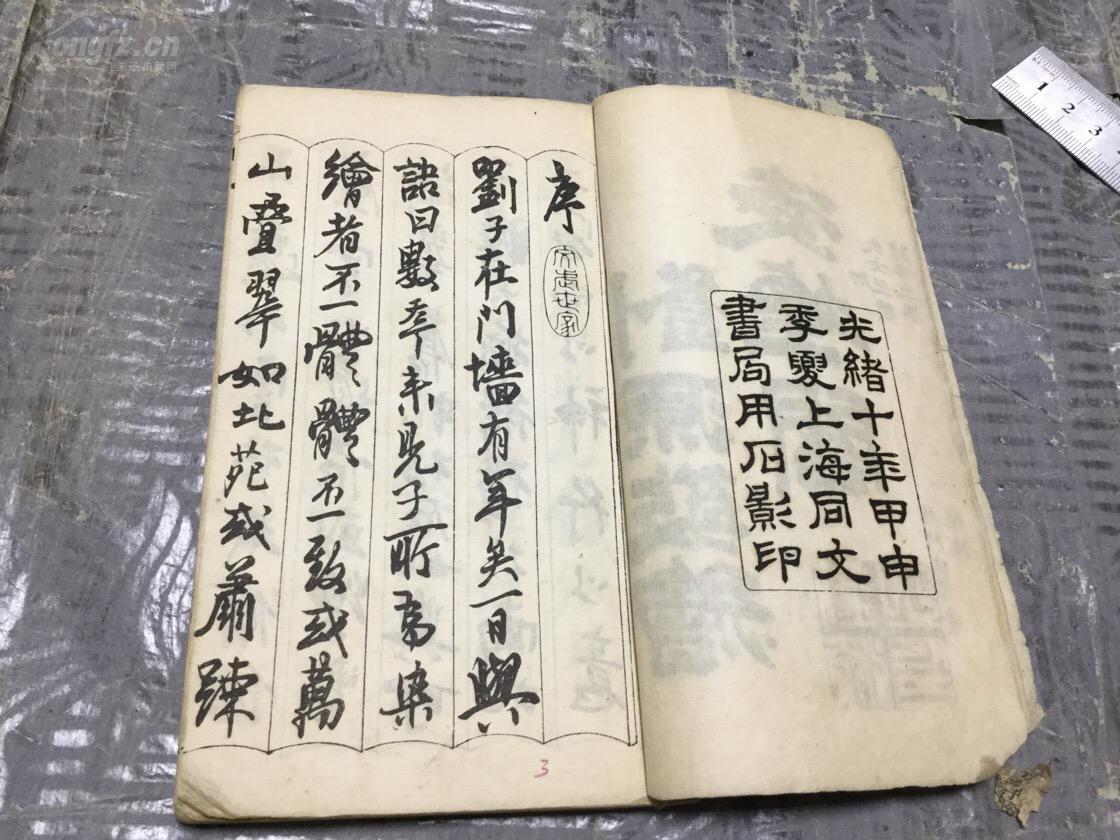 光緒十年甲申
季夏上海同文
書局用石影印
序
劉子在門墻有年矣一日與
語曰數年來見子所為染
繪者不一體體不一致或萬
山疊翠如北苑或蕭踈
3
kongfz.cn
1 2 3